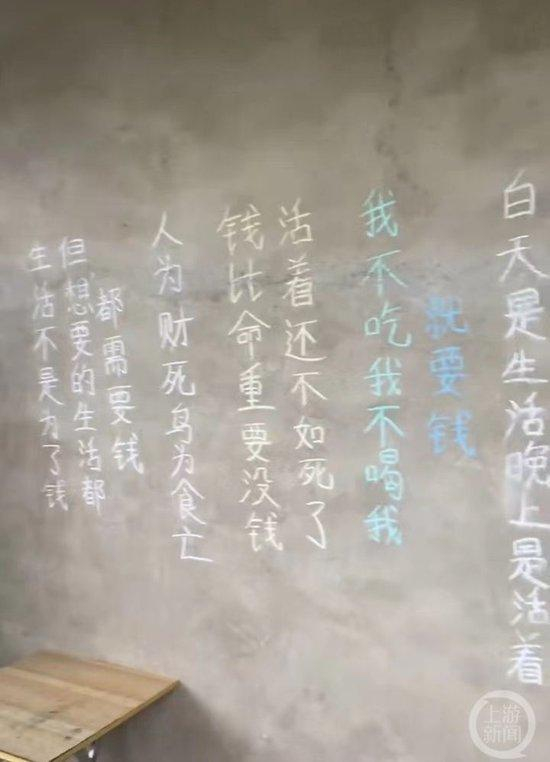 生活不是为了钱
但想要的生活都
都需要钱
人为财死鸟为食亡
钱比命重要没钱
活着还不如死了
我不吃我不喝我
就要钱
白天是生活晚上是活着
上游新闻